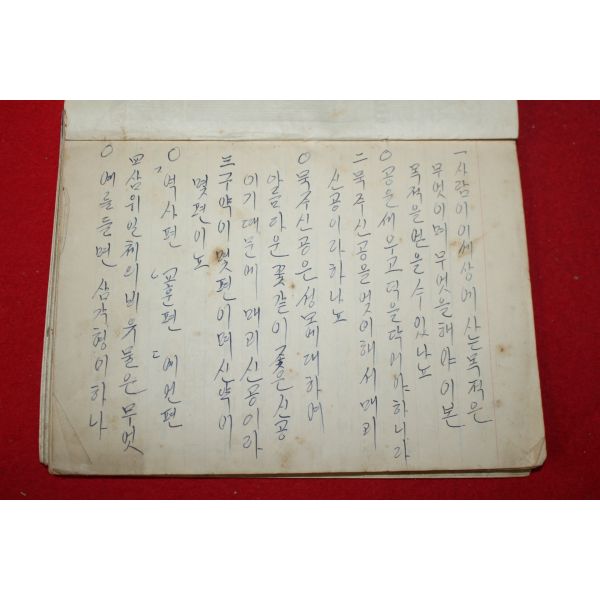 一 사람이 이세상에 사는목적은
무엇이며 무엇을해야 이본
목적을 받을수있나뇨
○ 공은세우고 덕을닥어야하니라
二 묵주신공을 엇이해서 매괴
신공이라하나뇨
○ 묵주신공은 성모에대하여
알음다운 꽃같이 좋은신공
이기대문에 매괴신공이라
三 구약이 몇편이며 신약이
몇편이뇨
○ 력사편 교훈편 예언편
四 삼위일체의 비유물은 무엇
○ 예를들면 삼각형이하나